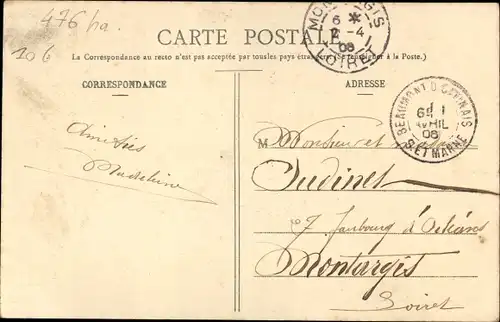 476 ha.
106
CARTE POSTALE
La Correspondance au recto n'est pas acceptée par tous les pays étrangers (Se renseigner à la Poste.)
CORRESPONDANCE
ADRESSE
MONTARGIS
6
2-4
08
LOIRET
BEAUMONT DU GATINAIS
6
1
AVRIL
08
S. ET MARNE
Amitiés
Madeleine
M Monsieur et
Oudinet
7 faubourg d'Orléans
Montargis
Loiret